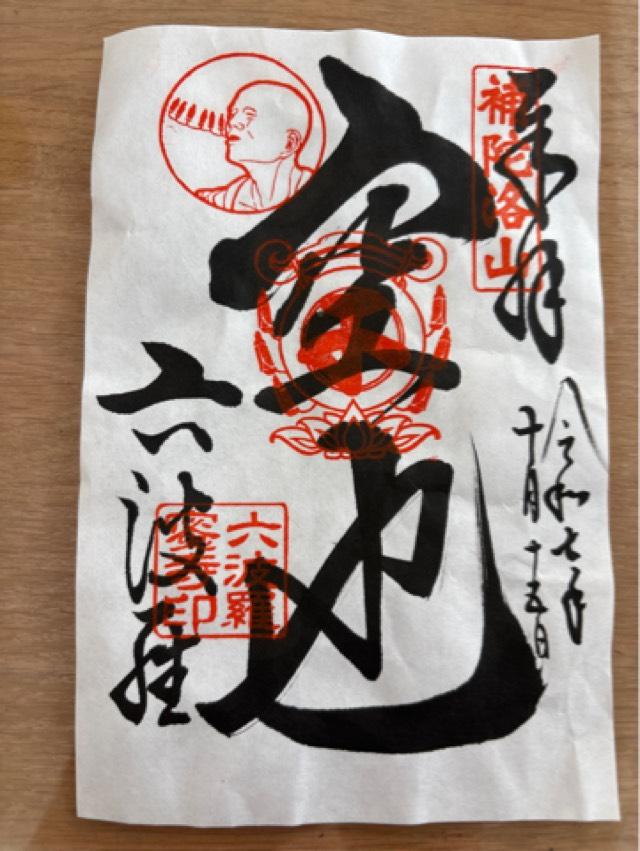 奉拝
補陀洛山
令和七年
十月十五日
空也
六波羅
六波羅
蜜寺印